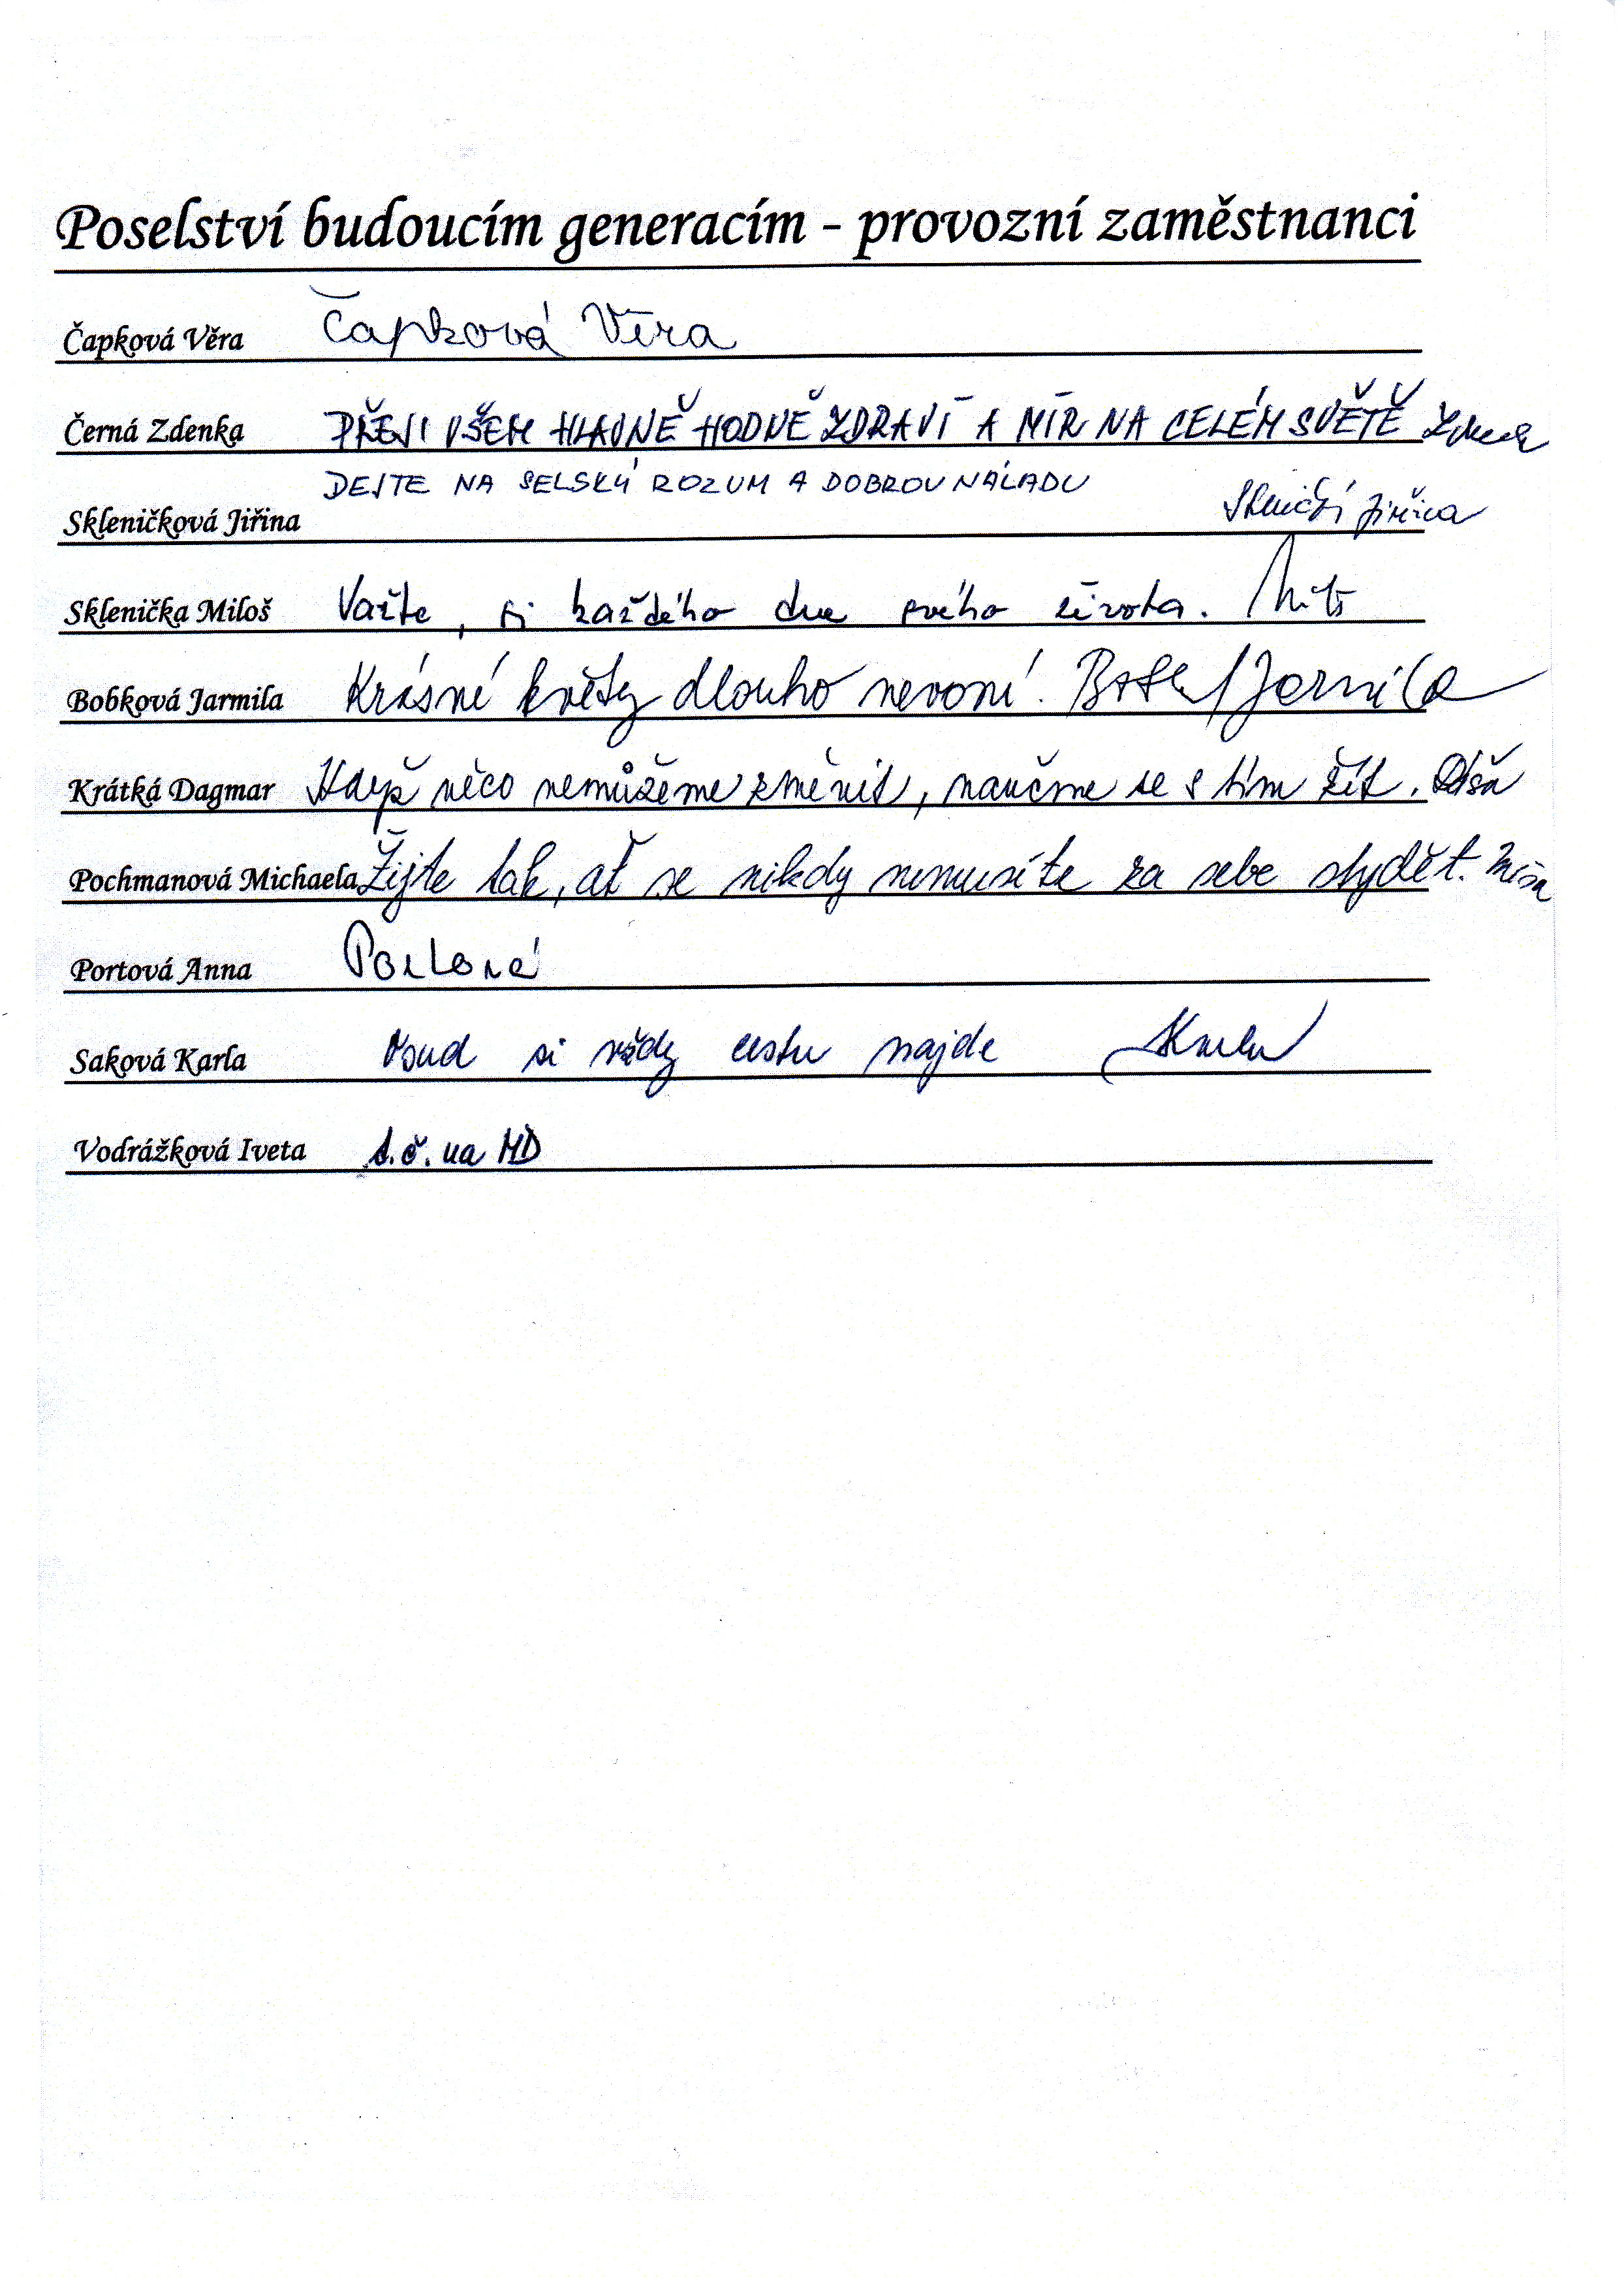 Poselství budoucím generacím - provozní zaměstnanci
Čapková Věra Čapková Věra
Černá Zdenka PŘEJI VŠEM HLAVNĚ HODNĚ ZDRAVÍ A MÍR NA CELÉM SVĚTĚ
DEJTE NA SELSKÝ ROZUM A DOBROU NÁLADU
Skleničková Jiřina Jiřina
Sklenička Miloš Važte, si každého dne svého života.
Bobková Jarmila Krásné květy dlouho nevoní. Jarmila
Krátká Dagmar Když něco nemůžeme změnit, naučme se s tím žít. Dáša
Pochmanová Michaela Žijte tak, ať se nikdy nemusíte za sebe stydět. Míša
Portová Anna Portová
Saková Karla Osud si vždy cestu najde
Vodrážková Iveta t.č. na MD